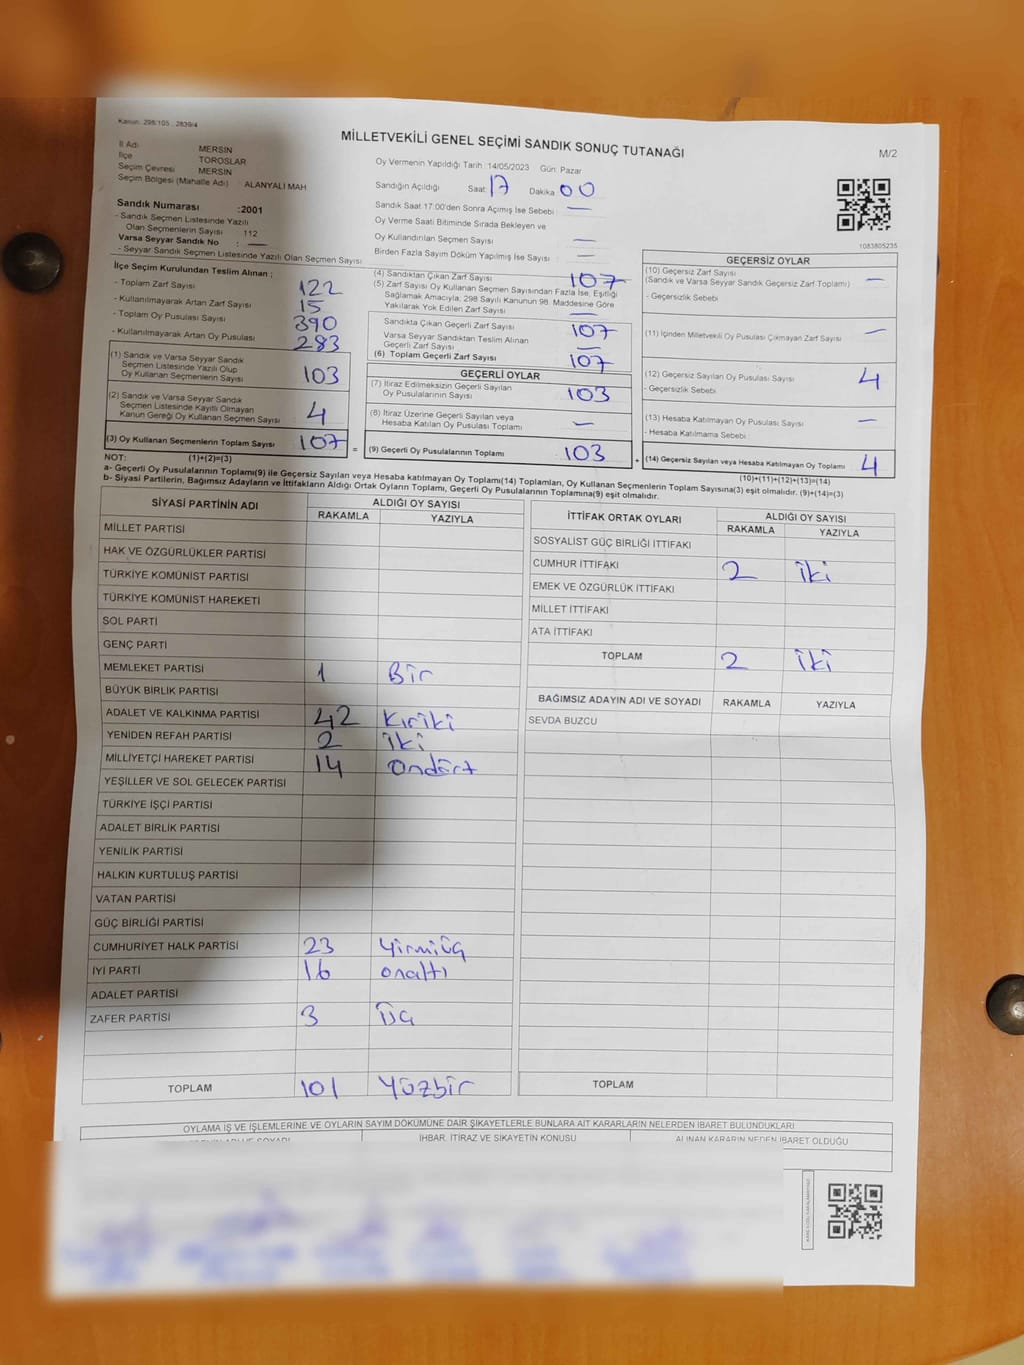 Kanun: 298/105 , 2839/4
MİLLETVEKİLİ GENEL SEÇİMİ SANDIK SONUÇ TUTANAĞI
M/2
İl Adı MERSİN
İlçe TOROSLAR
Seçim Çevresi MERSİN
Seçim Bölgesi (Mahalle Adı) : ALANYALI MAH
Oy Vermenin Yapıldığı Tarih :14/05/2023 Gün: Pazar
Sandığın Açıldığı Saat: 17 Dakika 00
Sandık Saat 17:00'den Sonra Açımış İse Sebebi —
Oy Verme Saati Bitiminde Sırada Bekleyen ve
Oy Kullandırılan Seçmen Sayısı —
Birden Fazla Sayım Döküm Yapılmış İse Sayısı : —
1083805235
Sandık Numarası :2001
- Sandık Seçmen Listesinde Yazılı
Olan Seçmenlerin Sayısı 112
Varsa Seyyar Sandık No : —
- Seyyar Sandık Seçmen Listesinde Yazılı Olan Seçmen Sayısı
İlçe Seçim Kurulundan Teslim Alınan ;
- Toplam Zarf Sayısı 122
- Kullanılmayarak Artan Zarf Sayısı 15
- Toplam Oy Pusulası Sayısı 390
- Kullanılmayarak Artan Oy Pusulası 283
(1) Sandık ve Varsa Seyyar Sandık
Seçmen Listesinde Yazılı Olup
Oy Kullanan Seçmenlerin Sayısı 103
(2) Sandık ve Varsa Seyyar Sandık
Seçmen Listesinde Kayıtlı Olmayan
Kanun Gereği Oy Kullanan Seçmen Sayısı 4
(3) Oy Kullanan Seçmenlerin Toplam Sayısı 107 =
(4) Sandıktan Çıkan Zarf Sayısı 107
(5) Zarf Sayısı Oy Kullanan Seçmen Sayısından Fazla İse, Eşitliği
Sağlamak Amacıyla, 298 Sayılı Kanunun 98. Maddesine Göre
Yakılarak Yok Edilen Zarf Sayısı —
Sandıkta Çıkan Geçerli Zarf Sayısı 107
Varsa Seyyar Sandıktan Teslim Alınan
Geçerli Zarf Sayısı —
(6) Toplam Geçerli Zarf Sayısı 107
GEÇERLİ OYLAR
(7) İtiraz Edilmeksizin Geçerli Sayılan
Oy Pusulalarının Sayısı 103
(8) İtiraz Üzerine Geçerli Sayılan veya
Hesaba Katılan Oy Pusulası Toplamı —
(9) Geçerli Oy Pusulalarının Toplamı 103 +
GEÇERSİZ OYLAR
(10) Geçersiz Zarf Sayısı
(Sandık ve Varsa Seyyar Sandık Geçersiz Zarf Toplamı) —
- Geçersizlik Sebebi
(11) İçinden Milletvekili Oy Pusulası Çıkmayan Zarf Sayısı —
(12) Geçersiz Sayılan Oy Pusulası Sayısı 4
- Geçersizlik Sebebi
(13) Hesaba Katılmayan Oy Pusulası Sayısı —
- Hesaba Katılmama Sebebi
(14) Geçersiz Sayılan veya Hesaba Katılmayan Oy Toplamı 4
NOT: (1)+(2)=(3)
(10)+(11)+(12)+(13)=(14)
a- Geçerli Oy Pusulalarının Toplamı(9) ile Geçersiz Sayılan veya Hesaba katılmayan Oy Toplamı(14) Toplamları, Oy Kullanan Seçmenlerin Toplam Sayısına(3) eşit olmalıdır. (9)+(14)=(3)
b- Siyasi Partilerin, Bağımsız Adayların ve İttifakların Aldığı Ortak Oyların Toplamı, Geçerli Oy Pusulalarının Toplamına(9) eşit olmalıdır.
SİYASİ PARTİNİN ADI ALDIĞI OY SAYISI
RAKAMLA YAZIYLA
MİLLET PARTİSİ
HAK VE ÖZGÜRLÜKLER PARTİSİ
TÜRKİYE KOMÜNİST PARTİSİ
TÜRKİYE KOMÜNİST HAREKETİ
SOL PARTİ
GENÇ PARTİ
MEMLEKET PARTİSİ 1 Bir
BÜYÜK BİRLİK PARTİSİ
ADALET VE KALKINMA PARTİSİ 42 Kırkiki
YENİDEN REFAH PARTİSİ 2 iki
MİLLİYETÇİ HAREKET PARTİSİ 14 ondört
YEŞİLLER VE SOL GELECEK PARTİSİ
TÜRKİYE İŞÇİ PARTİSİ
ADALET BİRLİK PARTİSİ
YENİLİK PARTİSİ
HALKIN KURTULUŞ PARTİSİ
VATAN PARTİSİ
GÜÇ BİRLİĞİ PARTİSİ
CUMHURİYET HALK PARTİSİ 23 Yirmiüç
İYİ PARTİ 16 onaltı
ADALET PARTİSİ
ZAFER PARTİSİ 3 üç
TOPLAM 101 Yüzbir
İTTİFAK ORTAK OYLARI ALDIĞI OY SAYISI
RAKAMLA YAZIYLA
SOSYALİST GÜÇ BİRLİĞİ İTTİFAKI
CUMHUR İTTİFAKI 2 iki
EMEK VE ÖZGÜRLÜK İTTİFAKI
MİLLET İTTİFAKI
ATA İTTİFAKI
TOPLAM 2 iki
BAĞIMSIZ ADAYIN ADI VE SOYADI RAKAMLA YAZIYLA
SEVDA BUZCU
TOPLAM
OYLAMA İŞ VE İŞLEMLERİNE VE OYLARIN SAYIM DÖKÜMÜNE DAİR ŞİKAYETLERLE BUNLARA AİT KARARLARIN NELERDEN İBARET BULUNDUKLARI
İHBAR, İTİRAZ VE ŞİKAYETİN KONUSU
ALINAN KARARIN NEDEN İBARET OLDUĞU